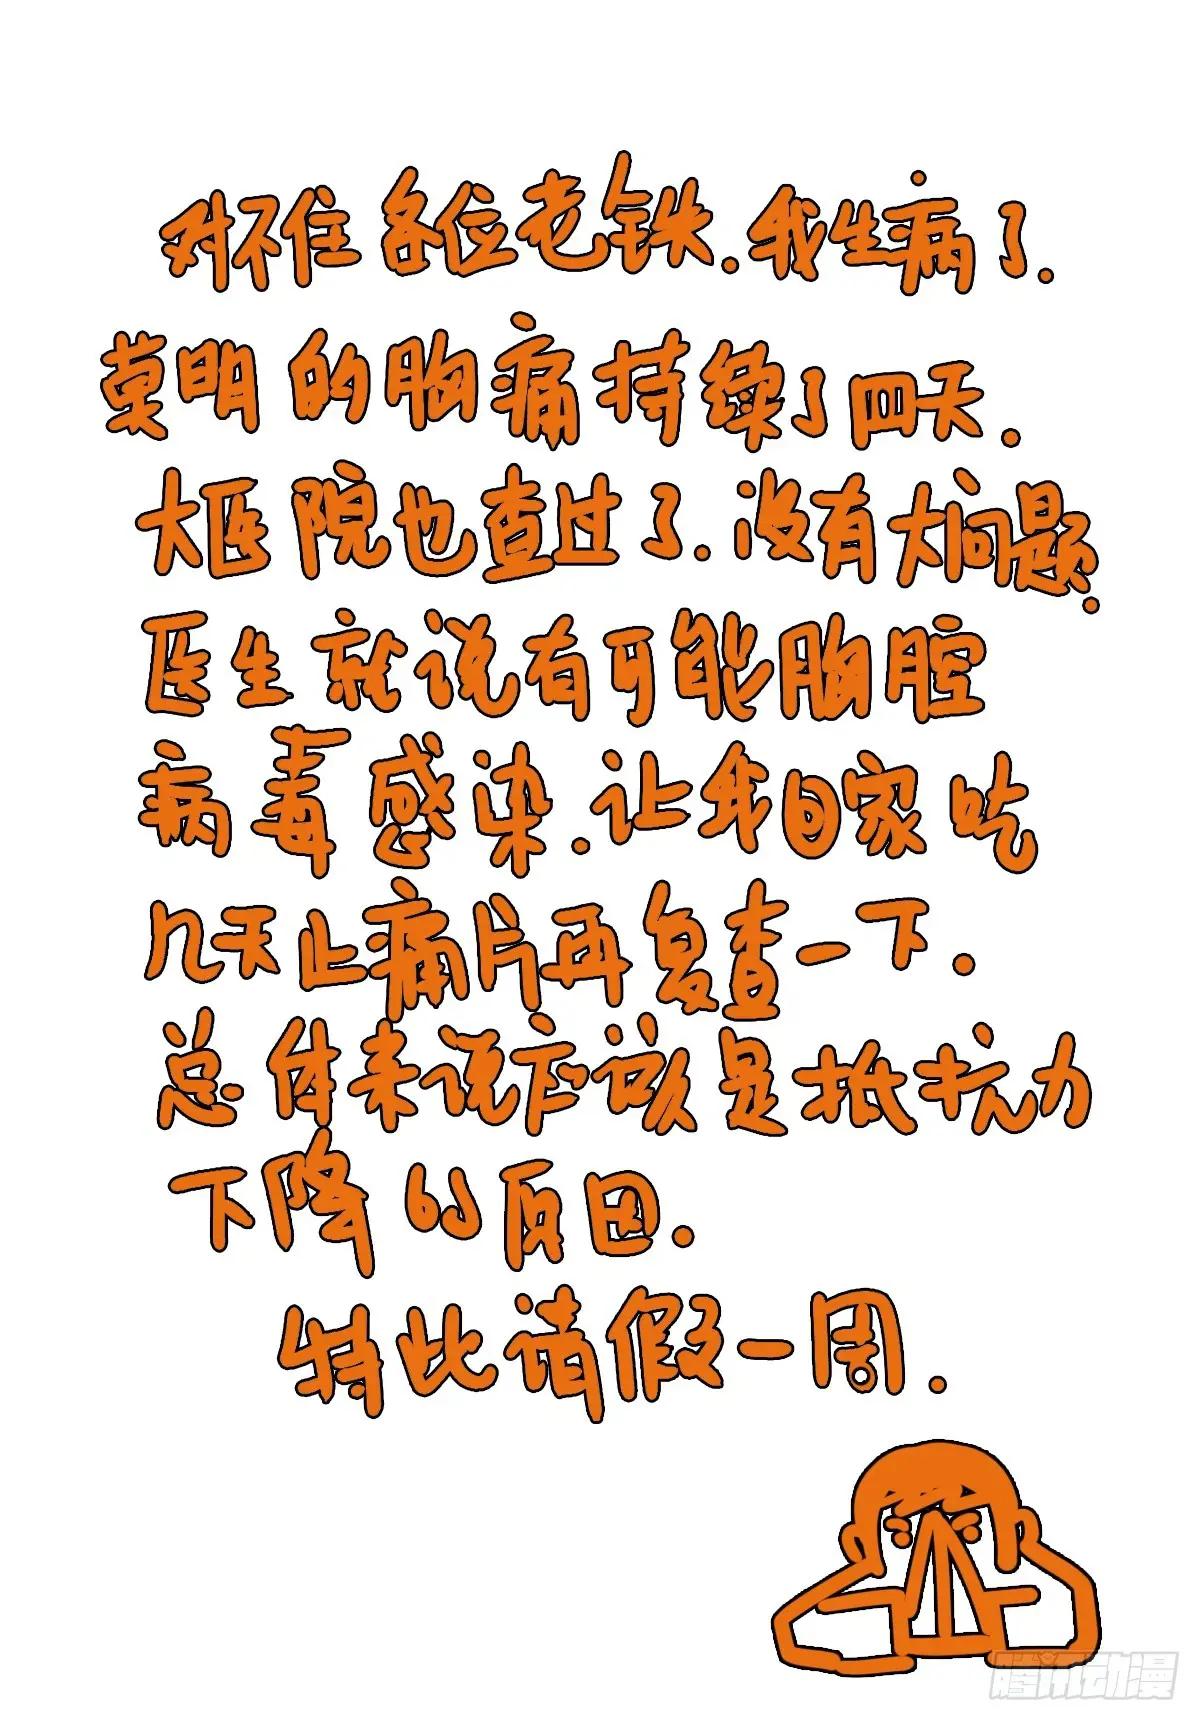 对不住各位老铁.我生病了.
莫明的胸痛持续了四天.
大医院也查过了.没有大问题.
医生就说有可能胸腔
病毒感染.让我回家吃
几天止痛片再复查一下.
总体来说应该是抵抗力
下降的反因.
特此请假一周.
腾讯动漫